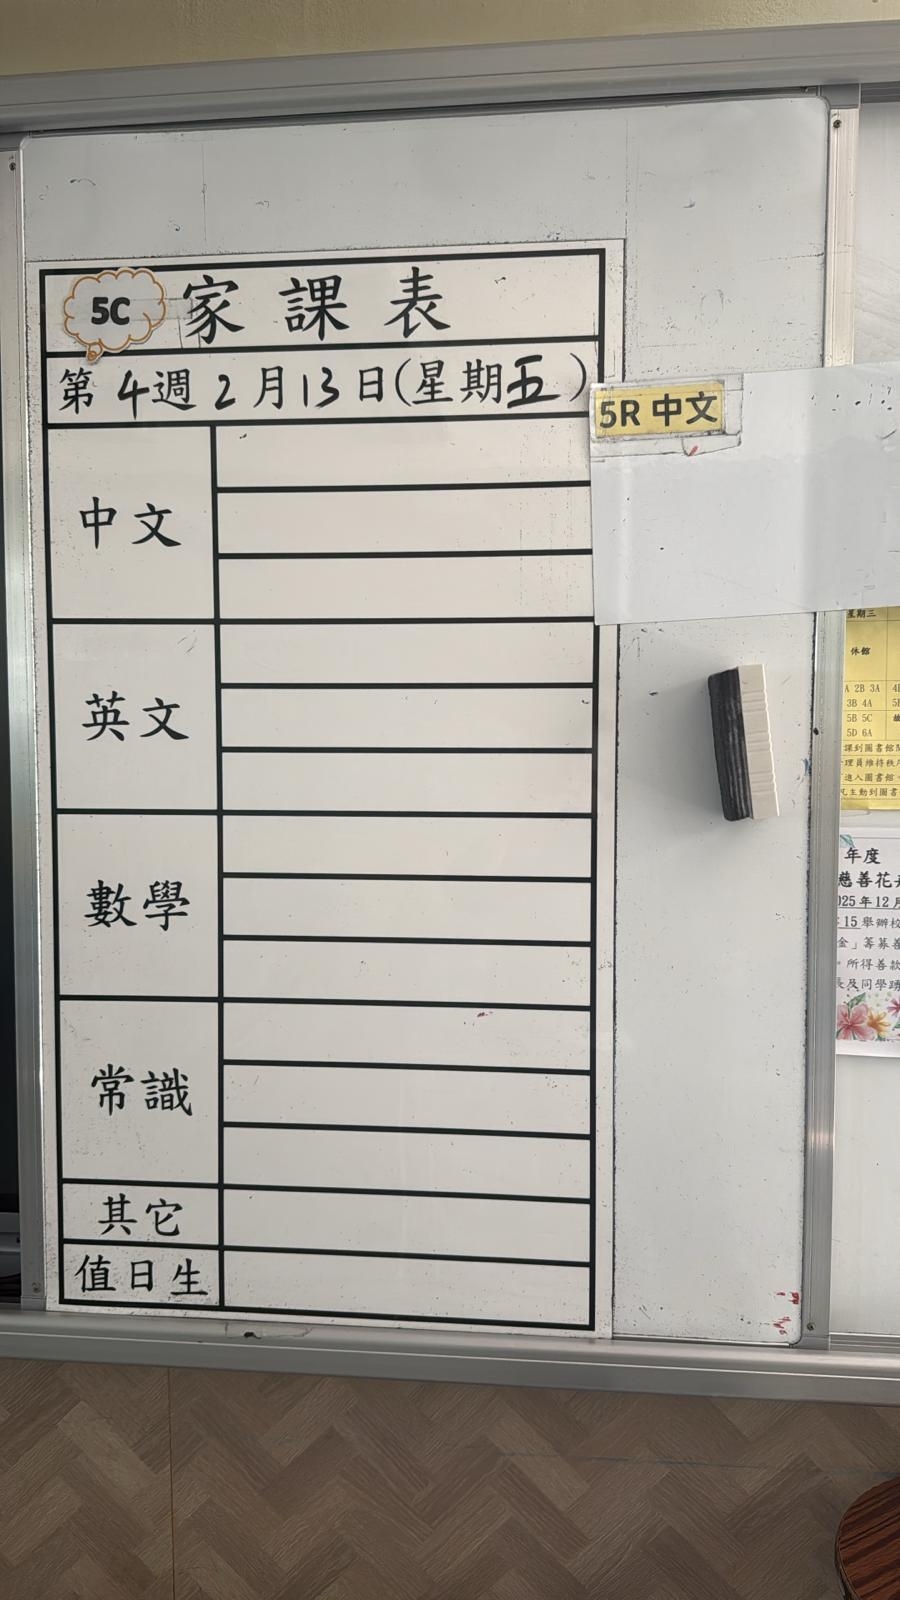 5C 家課表
第4週2月13日(星期五)
5R 中文
中文
英文
數學
常識
其它
值日生
星期三
休館
A 2B 3A
3B 4A
5B 5C
5D 6A
課到圖書館
理員維持秩
進入圖書館
主動到圖書
年度
慈善花
025年12月
15舉辦校
金」籌募善
所得善款
及同學踴